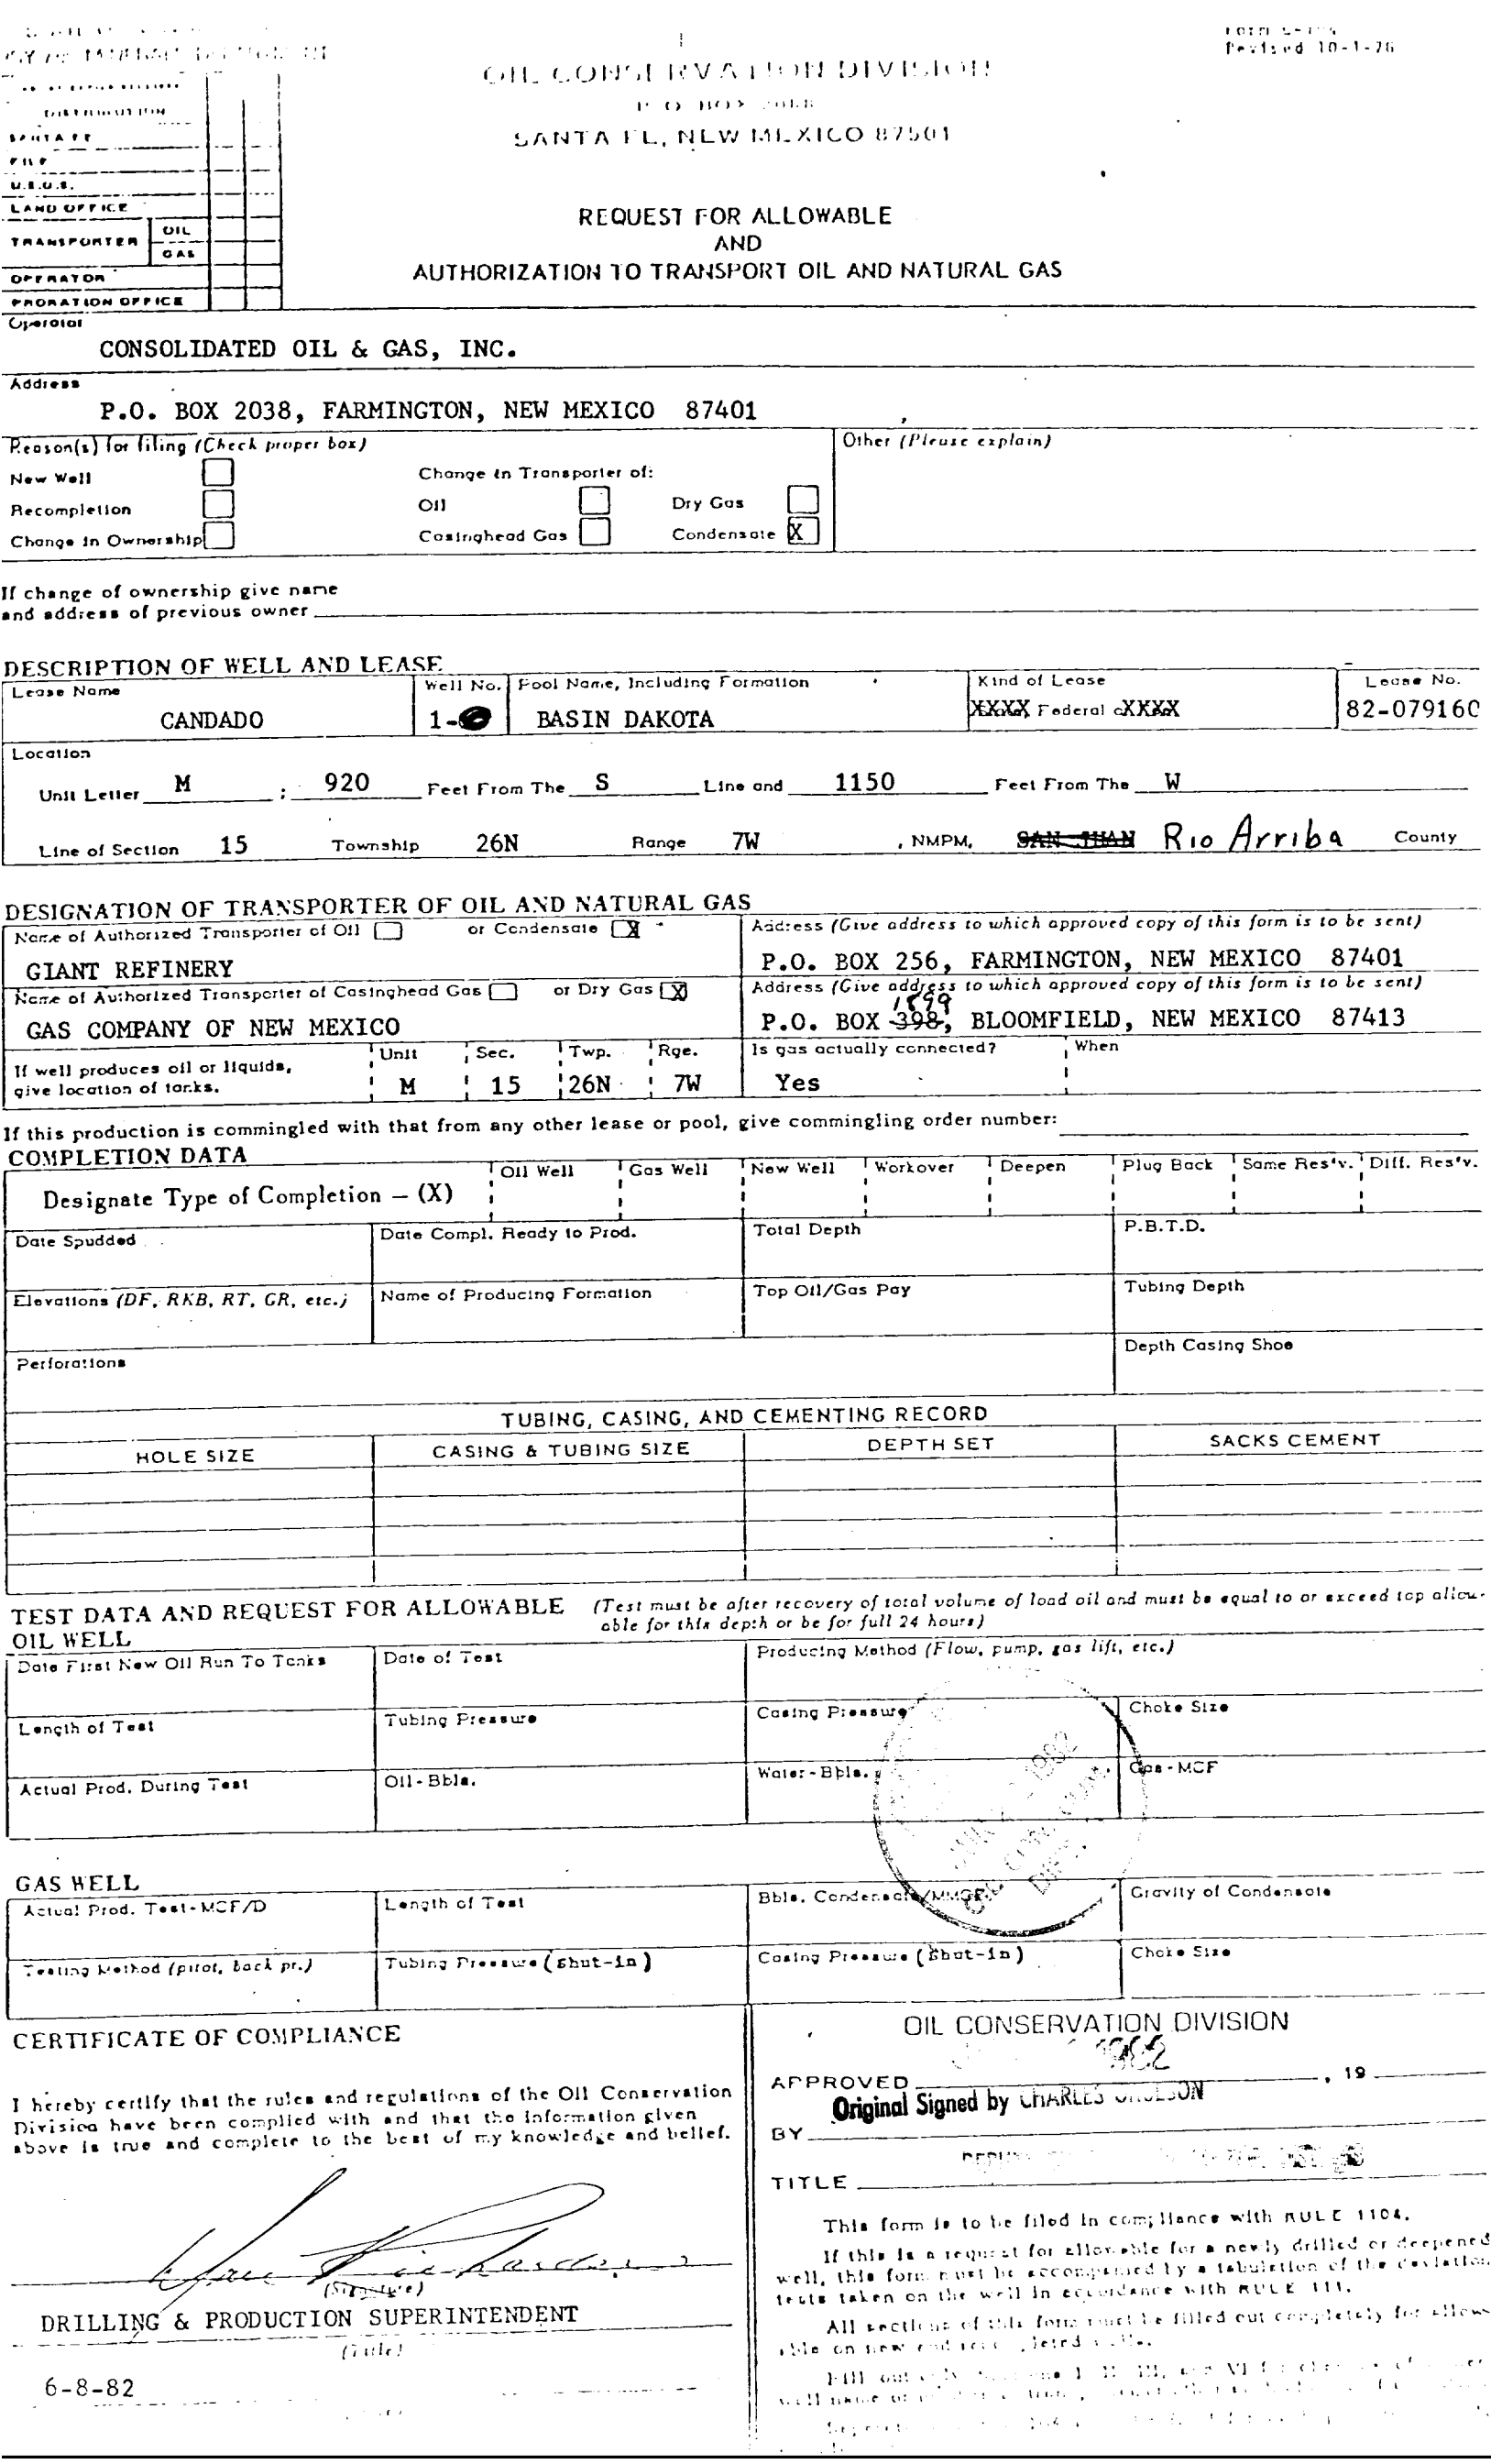 Revised 10-1-78
OIL CONSERVATION DIVISION
P. O. BOX 2088
SANTA FE, NEW MEXICO 87501
DISTRIBUTION
SANTA FE
FILE
U.S.G.S.
LAND OFFICE
TRANSPORTER OIL
GAS
OPERATOR
PRORATION OFFICE
REQUEST FOR ALLOWABLE
AND
AUTHORIZATION TO TRANSPORT OIL AND NATURAL GAS
Operator
CONSOLIDATED OIL & GAS, INC.
Address
P.O. BOX 2038, FARMINGTON, NEW MEXICO 87401
Reason(s) for filing (Check proper box) Other (Please explain)
New Well Change in Transporter of:
Recompletion Oil Dry Gas
Change in Ownership Casinghead Gas Condensate X
If change of ownership give name
and address of previous owner
DESCRIPTION OF WELL AND LEASE
Lease Name Well No. Pool Name, Including Formation Kind of Lease Lease No.
CANDADO 1- BASIN DAKOTA XXXX Federal XXXX 82-079160
Location
Unit Letter M : 920 Feet From The S Line and 1150 Feet From The W
Line of Section 15 Township 26N Range 7W , NMPM, SAN JUAN Rio Arriba County
DESIGNATION OF TRANSPORTER OF OIL AND NATURAL GAS
Name of Authorized Transporter of Oil or Condensate X Address (Give address to which approved copy of this form is to be sent)
GIANT REFINERY P.O. BOX 256, FARMINGTON, NEW MEXICO 87401
Name of Authorized Transporter of Casinghead Gas or Dry Gas X Address (Give address to which approved copy of this form is to be sent)
1899
GAS COMPANY OF NEW MEXICO P.O. BOX 398, BLOOMFIELD, NEW MEXICO 87413
If well produces oil or liquids, Unit Sec. Twp. Rge. Is gas actually connected? When
give location of tanks. M 15 26N 7W Yes
If this production is commingled with that from any other lease or pool, give commingling order number:
COMPLETION DATA
Designate Type of Completion – (X) Oil Well Gas Well New Well Workover Deepen Plug Back Same Res'v. Diff. Res'v.
Date Spudded Date Compl. Ready to Prod. Total Depth P.B.T.D.
Elevations (DF, RKB, RT, GR, etc.) Name of Producing Formation Top Oil/Gas Pay Tubing Depth
Perforations Depth Casing Shoe
TUBING, CASING, AND CEMENTING RECORD
HOLE SIZE CASING & TUBING SIZE DEPTH SET SACKS CEMENT
TEST DATA AND REQUEST FOR ALLOWABLE (Test must be after recovery of total volume of load oil and must be equal to or exceed top allow-
OIL WELL able for this depth or be for full 24 hours)
Date First New Oil Run To Tanks Date of Test Producing Method (Flow, pump, gas lift, etc.)
Length of Test Tubing Pressure Casing Pressure Choke Size
Actual Prod. During Test Oil-Bbls. Water-Bbls. Gas-MCF
1982
GAS WELL
Actual Prod. Test-MCF/D Length of Test Bbls. Condensate/MMCF Gravity of Condensate
Testing Method (pitot, back pr.) Tubing Pressure (Shut-in) Casing Pressure (Shut-in) Choke Size
CERTIFICATE OF COMPLIANCE
I hereby certify that the rules and regulations of the Oil Conservation
Division have been complied with and that the information given
above is true and complete to the best of my knowledge and belief.
(Signature)
DRILLING & PRODUCTION SUPERINTENDENT
(Title)
6-8-82
OIL CONSERVATION DIVISION
1982
APPROVED , 19
Original Signed by CHARLES GHOLSON
BY
TITLE
This form is to be filed in compliance with RULE 1104.
If this is a request for allowable for a newly drilled or deepened
well, this form must be accompanied by a tabulation of the deviation
tests taken on the well in accordance with RULE 111.
All sections of this form must be filled out completely for allow-
able on new and recompleted wells.